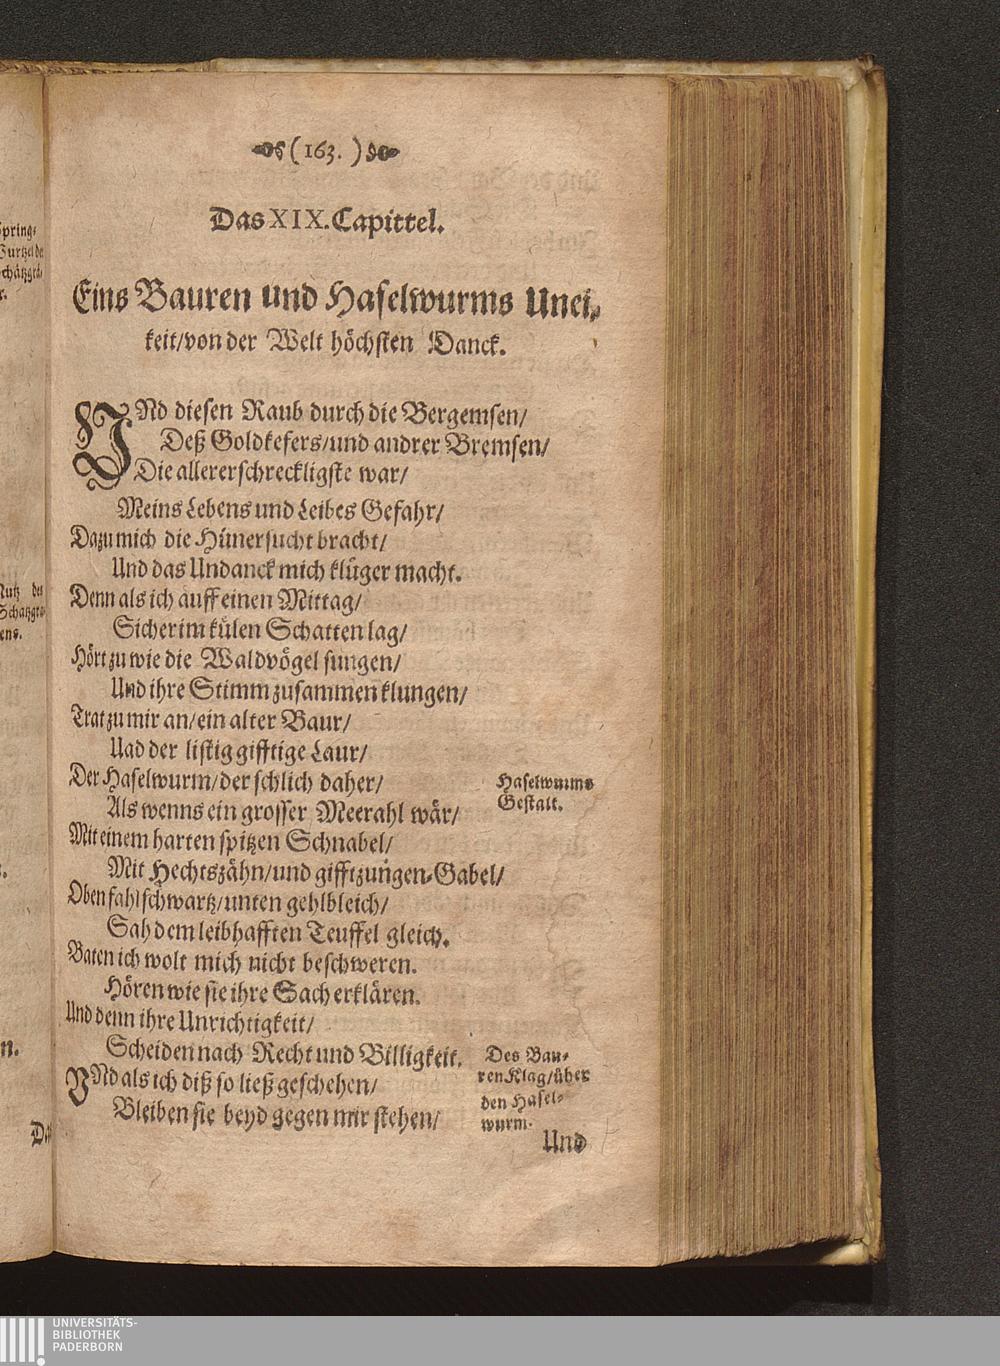 (163.)
Das XIX. Capittel.
Eins Bauren und Haselwurms Unei-
keit/von der Welt höchsten Danck.
VNd diesen Raub durch die Bergemsen/
Deß Goldkefers/und andrer Bremsen/
Die allererschreckligste war/
Meins Lebens und Leibes Gefahr/
Dazu mich die Hünersucht bracht/
Und das Undanck mich klüger macht.
Denn als ich auff einen Mittag/
Sicher im külen Schatten lag/
Hört zu wie die Waldvögel sungen/
Und ihre Stimm zusammen klungen/
Trat zu mir an/ein alter Baur/
Uad der listig gifftige Laur/
Der Haselwurm/der schlich daher/
Als wenns ein grosser Meerahl wär/
Haselwurms
Gestalt.
Mit einem harten spitzen Schnabel/
Mit Hechtszähn/und gifftzungen-Gabel/
Oben fahlschwartz/unten gehlbleich/
Sah dem leibhafften Teuffel gleich.
Baten ich wolt mich nicht beschweren.
Hören wie sie ihre Sach erklären.
Und denn ihre Unrichtigkeit/
Scheiden nach Recht und Billigkeit.
VNd als ich diß so ließ geschehen/
Bleiben sie beyd gegen mir stehen/
Des Bau-
ren Klag/über
den Hasel-
wurm.
Und
Spring-
Wurtzel de
Schätzgrä-
r.
Nutz des
Schatzgra-
ens.
n.
Da
UNIVERSITÄTS-
BIBLIOTHEK
PADERBORN